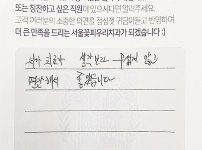 또는 칭찬하고 싶은 직원이 있으시다면 알려주세요.
고객 여러분의 소중한 의견을 정성껏 귀담아듣고 반영하여
더 큰 만족을 드리는 서울꽃피우리치과가 되겠습니다 :)
치아 치료가 생각보다 무섭지 않고
편안해서 좋았습니다